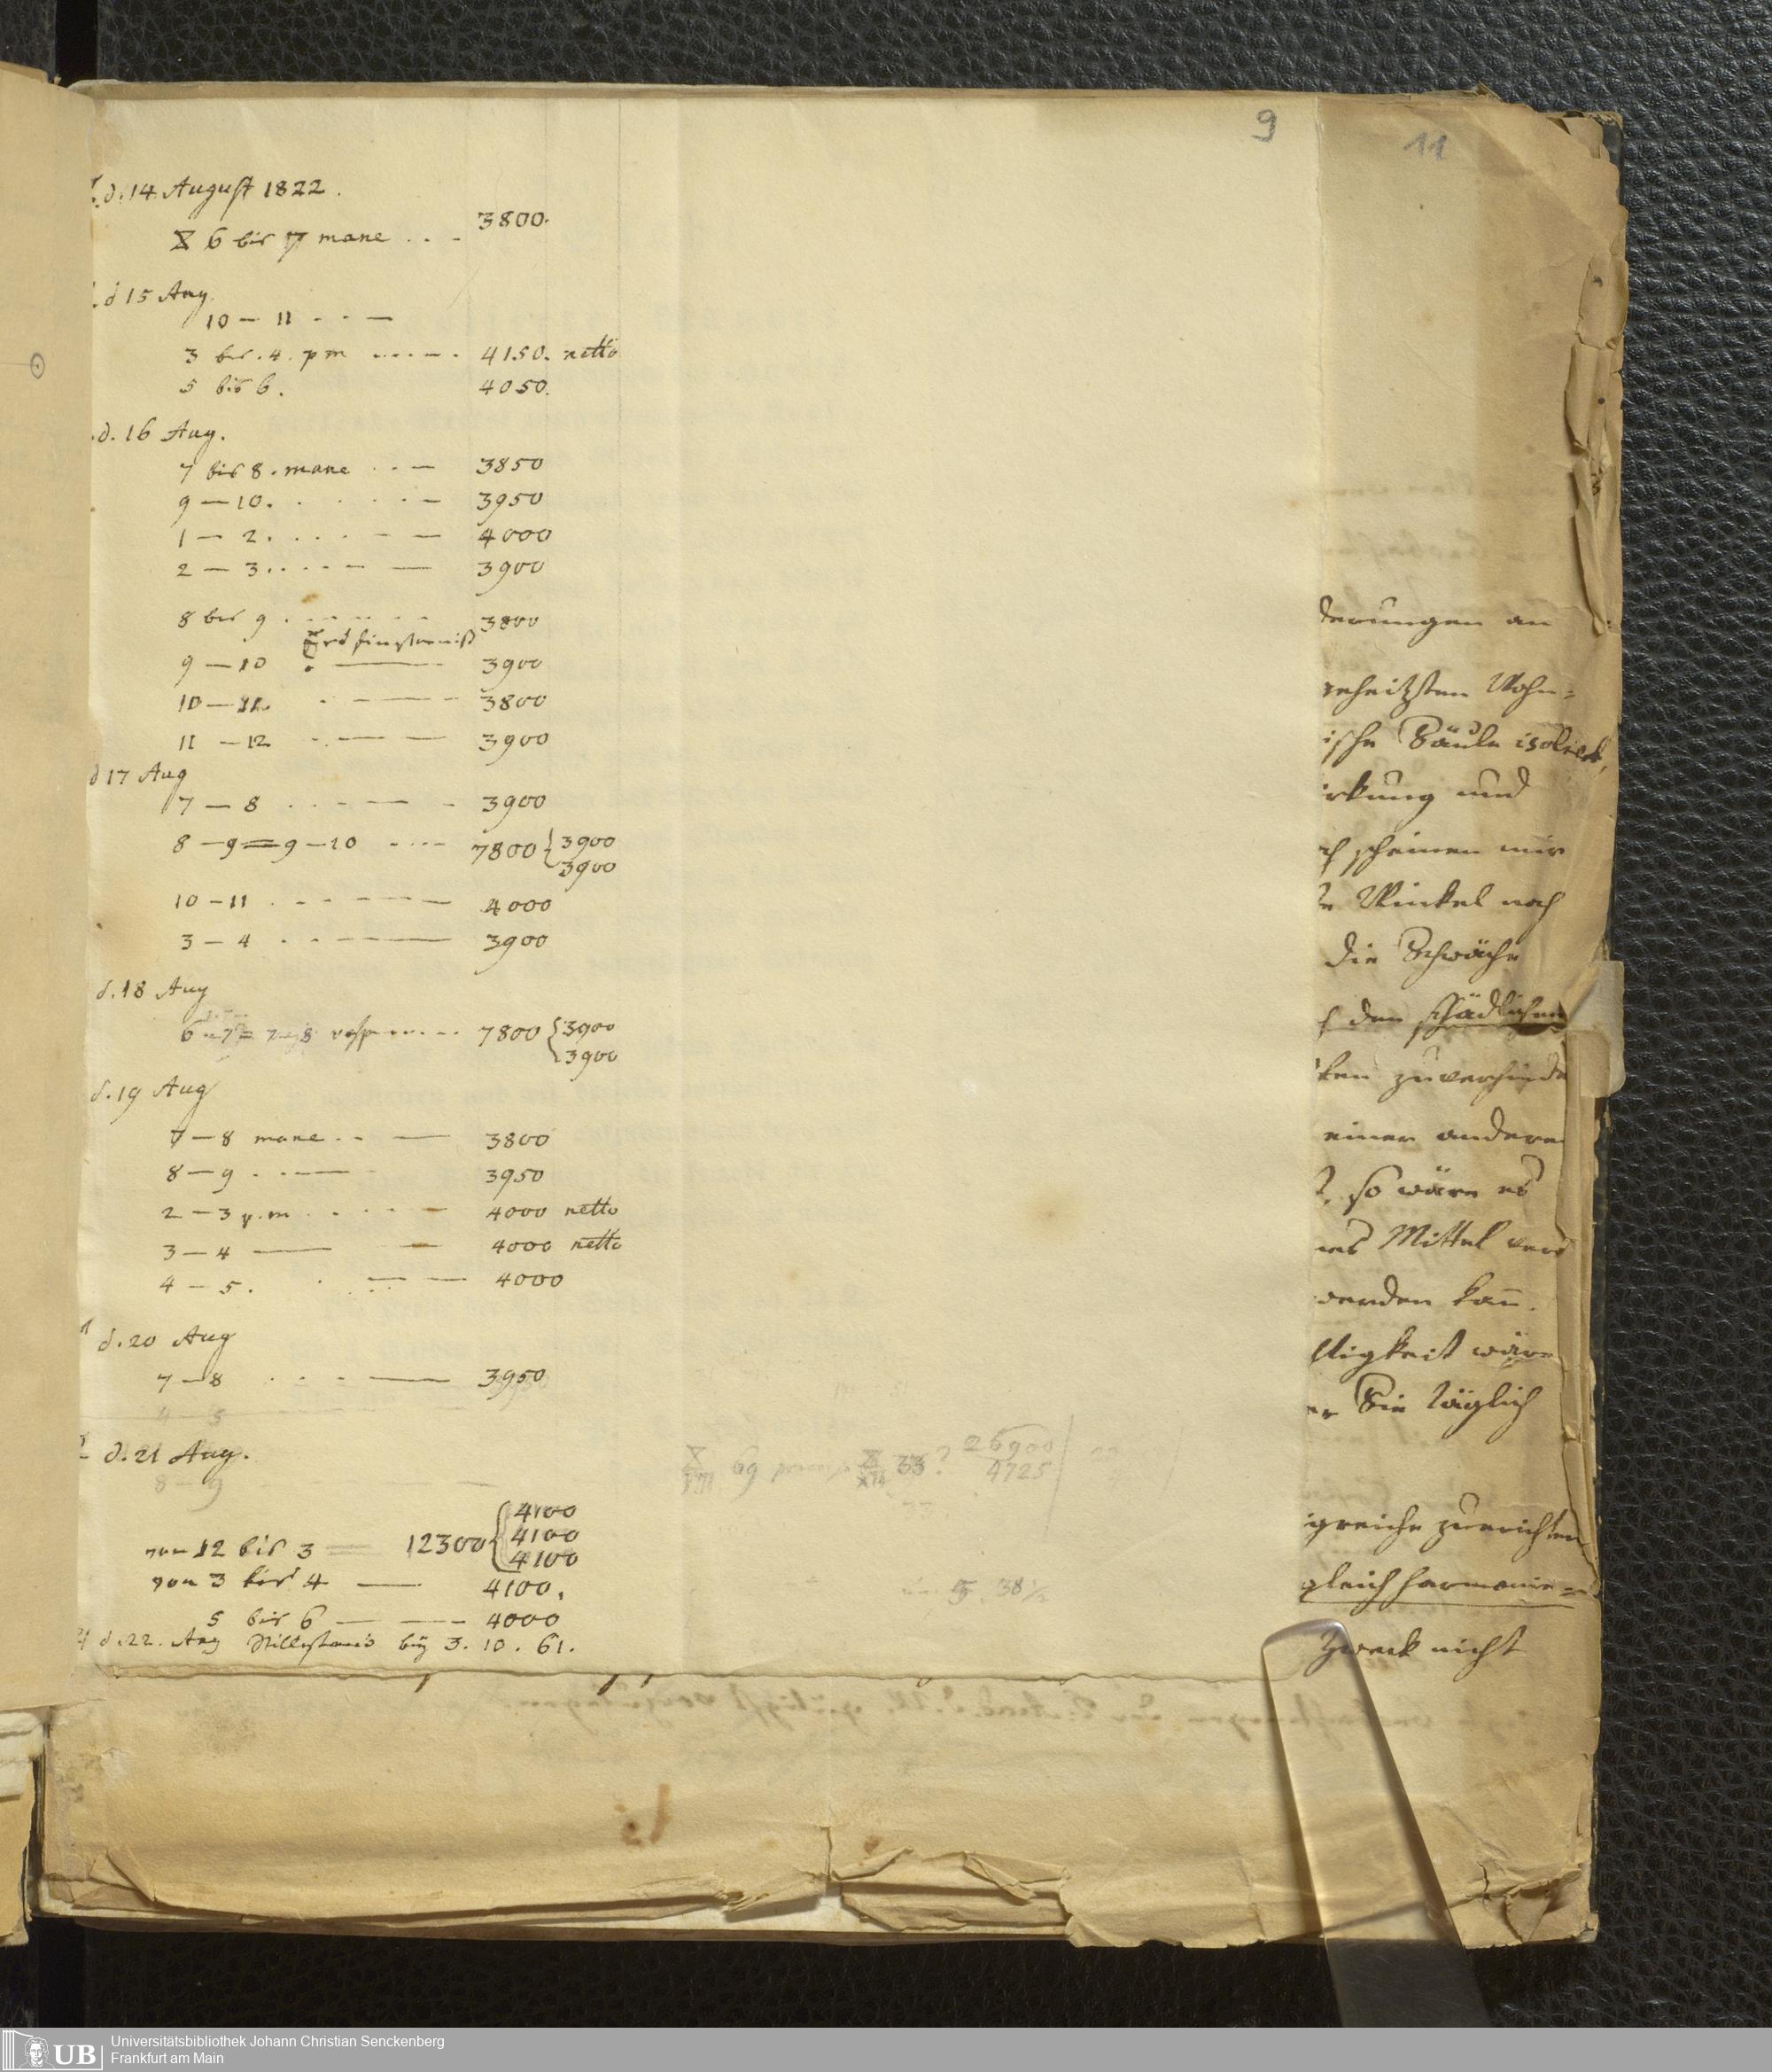 9
11
d. 14 August 1822.
X 6 bis 7 mane . . - 3800.
d 15 Aug.
10 — 11 - - —
3 bis. 4. pm ..... 4150. netto
5 bis 6. 4050.
d. 16 Aug.
7 bis 8. mane . . — 3850
9 — 10. . . . . — 3950
1 — 2. . . . - — 4000
2 — 3. . . - - — 3900
8 bis 9 . - - - - - 3800
Erdfinsterniß
9 — 10 — 3900
10 — 11. - - — 3800
11 — 12 - - — 3900
d 17 Aug
7 — 8 . . - - — - 3900
8 — 9 = 9 — 10 .... 7800 { 3900
3900
10 — 11 . - - - — 4000
3 — 4 . - — 3900
d. 18 Aug
6 - 7 = 7 - 8 vesp .... 7800 { 3900
3900
d. 19 Aug
7 — 8 mane . . — 3800
8 — 9 . . - — 3950
2 — 3 p.m . . . . - 4000 netto
3 — 4 — — 4000 netto
4 — 5. . — — 4000
d. 20 Aug
7 — 8 . . - — 3950
4 — 5
d. 21 Aug.
8 — 9
26900
69 33? 4725
von 12 bis 3 = 12300 { 4100
4100
4100
von 3 bis 4 — 4100.
5 bis 6 — — 4000
d. 22. Aug Stillstand bey 3. 10. 61.
5. 38½
derungen an
geheitzten Wohn=
ische Säule isolirt,
irkung und
scheinen mir
Winkel noch
die Schwäche
den schädlichen
ken zuverhinde
einer andere
so wäre es
Mittel
werden kann.
lligkeit wäre
er Sie täglich
greiche zuerichten
gleich harmonie=
Zweck nicht
UB
Universitätsbibliothek Johann Christian Senckenberg
Frankfurt am Main